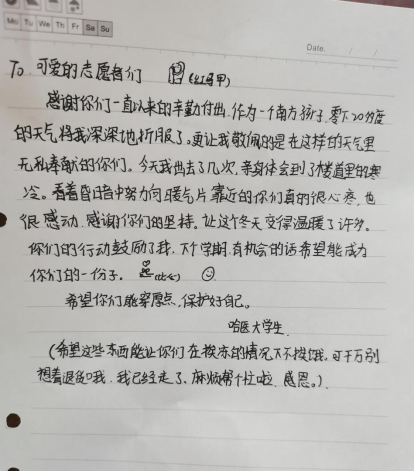 Mo Tu We Th Fr Sa Su
Date. / /
To 可爱的志愿者们 (红马甲)
感谢你们一直以来的辛勤付出.作为一个南方孩子.零下20分度
的天气将我深深地折服了。更让我敬佩的是在这样的天气里
无私奉献的你们。今天我出去了几次,亲身体会到了楼道里的寒
冷。看着昏暗中努力向暖气片靠近的你们真的很心疼,也
很感动.感谢你们的坚持。让这个冬天变得温暖了许多。
你们的行动鼓励了我.下个学期,有机会的话希望能成为
你们的一份子。(比心)
希望你们能穿厚点,保护好自己。
哈医大学生
(希望这些东西能让你们在挨冻的情况下不挨饿。可千万别
想着退回我,我已经走了、麻烦帮个忙啦,感恩。)